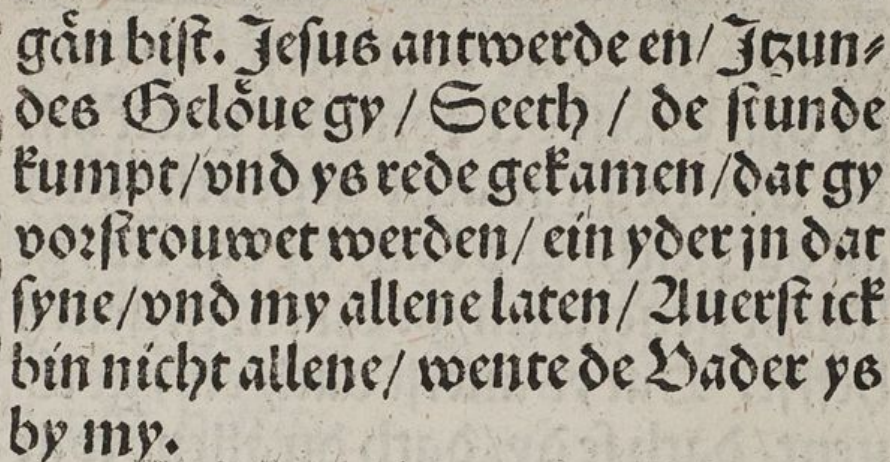 gaͤn biſt. Jeſus antwerde en/ Jtzun⸗
des Geloͤue gy / Seeth / de ſtunde
kumpt/vnd ys rede gekamen/dat gy
vorſtrouwet werden/ ein yder jn dat
ſyne/vnd my allene laten/ Auerſt ick
bin nicht allene/ wente de Vader ys
by my.